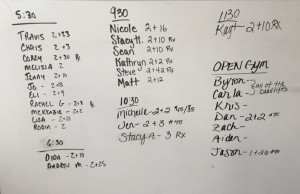 5:30
TRAVIS 2+23
CHRIS 2+3
COREY 2+30 Rx
MELISSA 2
JENNY 2+11
JO - 2+8
ELI - 2+9
RACHEL G - 2+8 Rx
MCKENZIE - 2+2
LISA - 2+21
RODIN - 2
6:30
DIDA - 2+10
ANDREW M - 2+25
930
Nicole 2+16
Stacy H. 2+10 Rx
Sean 2+10 Rx
Kathryn 2+2 Rx
Steve 2+42 Rx
Matt 2+12
1030
michelle - 2+2
Jen - 2+3
Stacy A. - 3 Rx
1130
Kat - 2+10 Rx
OPEN Gym
Byron -
Carla -
Kris -
Dan - 2+2
Zach -
Aiden -
Jason - 1+20